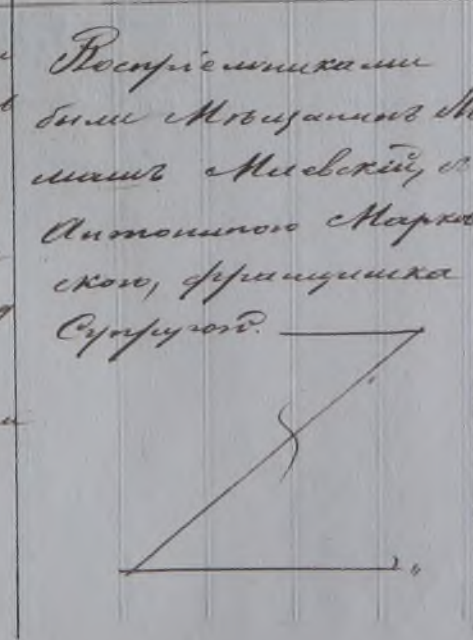 Воспріемниками
были Мѣщанинъ
машъ Млевскій, съ
Антониною Марков
скою, Францишка
Супругой.